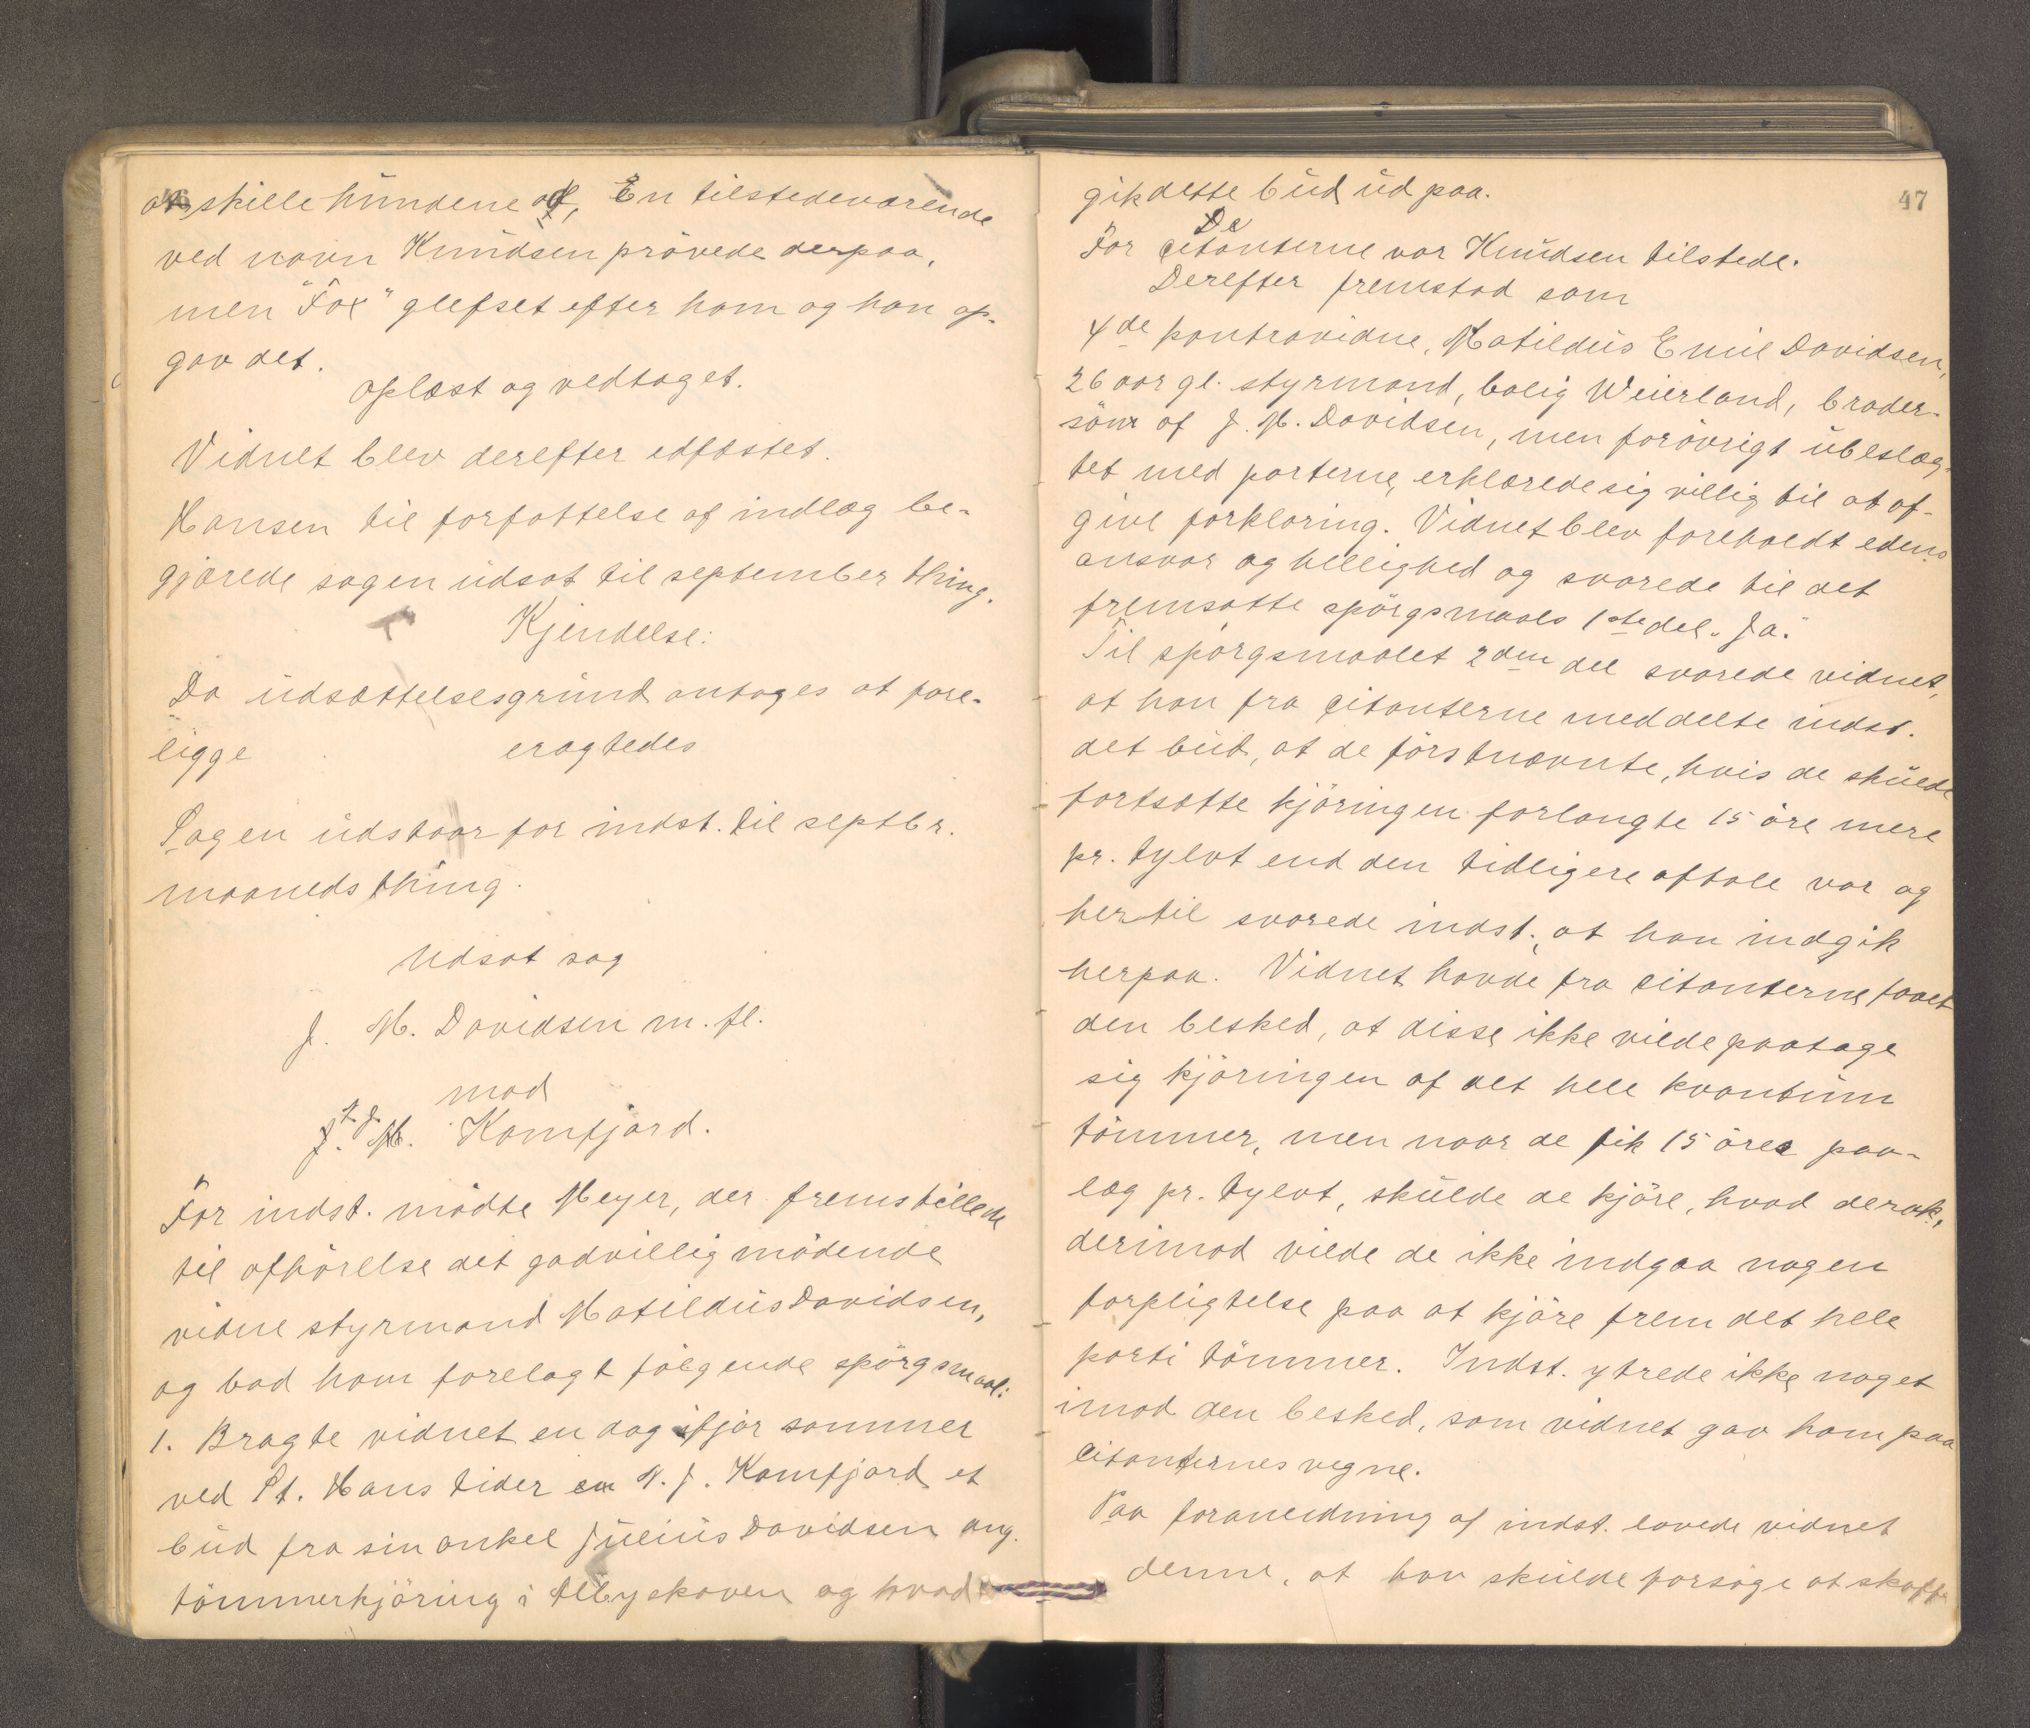 at skille hundene ad, En tilstedeværende
ved navn Knudsen prøvede derpaa,
men "Fox" glefset efter ham og han op-
gav det.
Oplæst og vedtaget.
Vidnet blev derefter edfæstet.
Hansen til forfattelse af indlæg be-
gjærede sagen udsat til september thing.
Kjendelse:
Da udsættelsesgrund antages at fore-
ligge eragtedes
Sagen udstaar for indst. til septbr.
maaneds thing.
Udsat sag
J. M. Davidsen m. fl.
mod
M. Kamfjord.
For indst. mødte Meyer, der fremstillede
til afhørelse det godvillig mødende
vidne styrmand Matildus Davidsen,
og bad ham forelagt følgende spørgsmaal:
1. Bragte vidnet en dag ifjor sommer
ved St. Hans tider N. J. Kamfjord et
bud fra sin onkel Julius Davidsen ang.
tømmerkjøring i Åbyskoven og hvad
47
gik dette bud ud paa.
For Citanterne var Knudsen tilstede.
Derefter fremstod som
4de kontravidne, Matildus Emil Davidsen,
26 aar gl. styrmand, bolig Weierland, broder-
sønn af J. M. Davidsen, men forøvrigt ubeslæg-
tet med parterne, erklærede sig villig til at af-
give forklaring. Vidnet blev foreholdt edens
ansvar og hellighed og svarede til det
fremsatte spørgsmaals 1ste del "Ja."
Til spørgsmaalet 2den del svarede vidnet,
at han fra citanterne meddelte indst.
det bud, at de førstnævnte, hvis de skulde
fortsætte kjøringen forlangte 15 øre mere
pr. tylvt end den tidligere aftale var og
hertil svarede indst., at han indgik
herpaa. Vidnet havde fra citanterne faaet
den besked, at disse ikke vilde paatage
sig kjøringen af det hele kvantum
tømmer, men naar de fik 15 øres paa-
læg pr. tylvt, skulde de kjøre, hvad de rak,
derimod vilde de ikke indgaa nogen
forpligtelse paa at kjøre frem det hele
parti tømmer. Indst. ytrede ikke noget
imod den besked, som vidnet gav ham paa
citanternes vegne.
Paa foranledning af indst. lovede vidnet
denne, at han skulde forsøge at skaffe